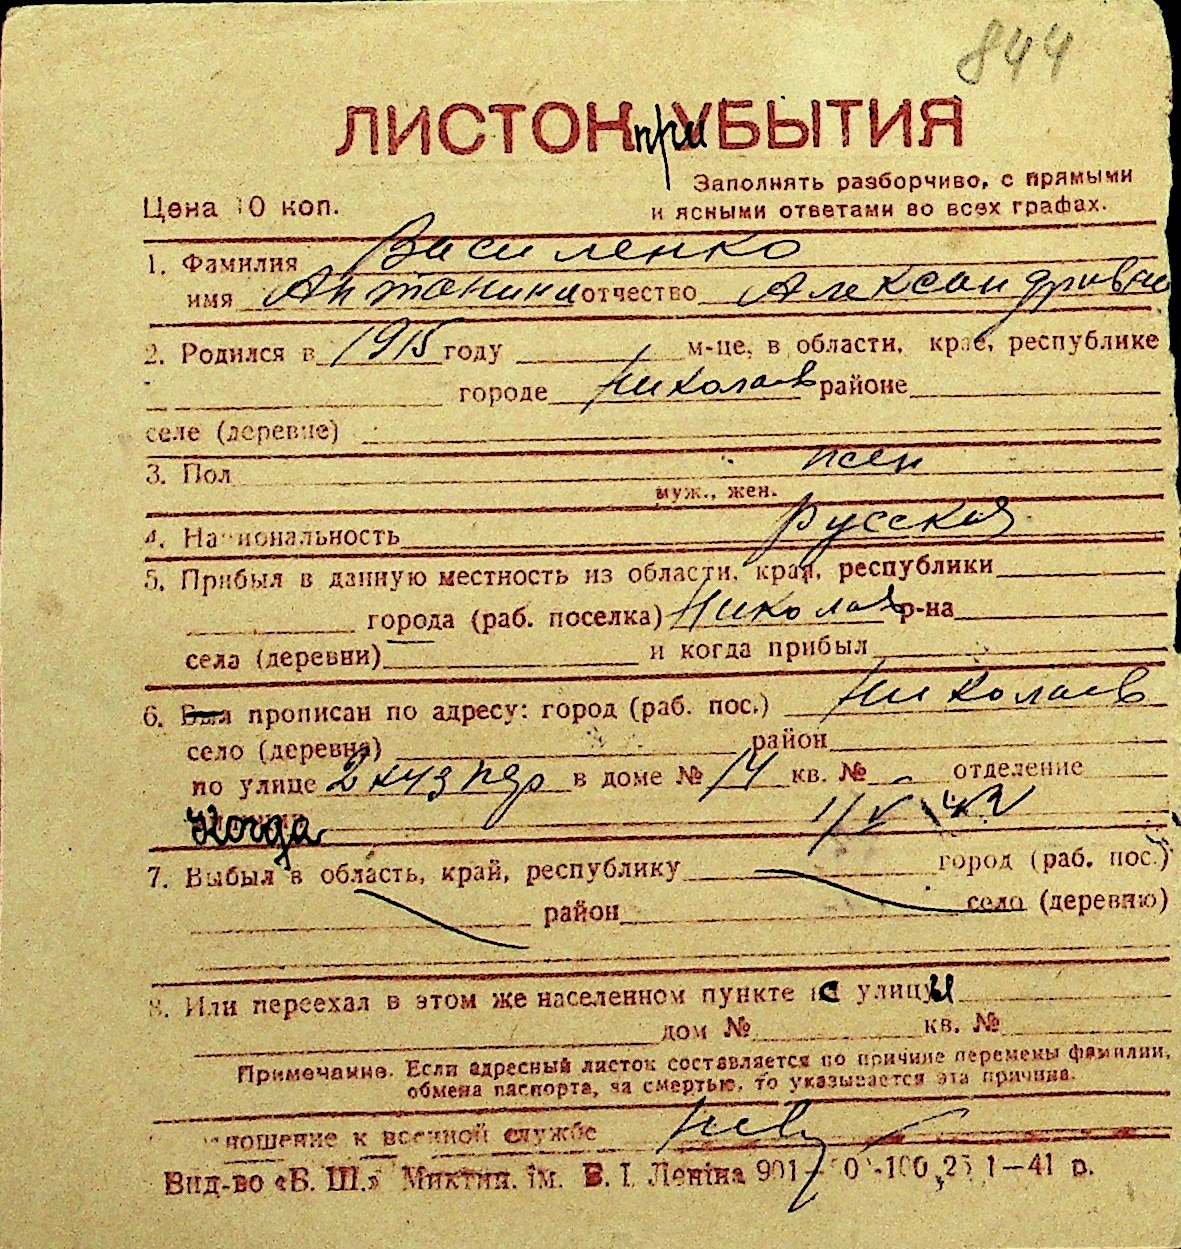 844
ЛИСТОК при УБЫТИЯ
Заполнять разборчиво, с прямыми
Цена 10 коп.
и ясными ответами во всех графах.
1. Фамилия Василенко
имя Антонина отчество Александровна
2. Родился в 1915 году м-це, в области, крае, республике
городе Николаев районе
селе (деревне)
3. Пол жен
муж., жен.
4. Национальность русская
5. Прибыл в данную местность из области, края, республики
города (раб. поселка) Николаев р-на
села (деревни) и когда прибыл
6. Был прописан по адресу: город (раб. пос.) Николаев
село (деревна) район
по улице 2 в доме № 14 кв. № - отделение
Когда
7. Выбыл в область, край, республику город (раб. пос.)
район село (деревню)
8. Или переехал в этом же населенном пункте с улицы
дом № кв. №
Примечание. Если адресный листок составляется по причине перемены фамилии,
обмена паспорта, за смертью, то указывается эта причина.
ношение к военной службе
Вид-во «Б. Ш.» Миктип. ім. В. І. Леніна 901 -100 25 1—41 р.